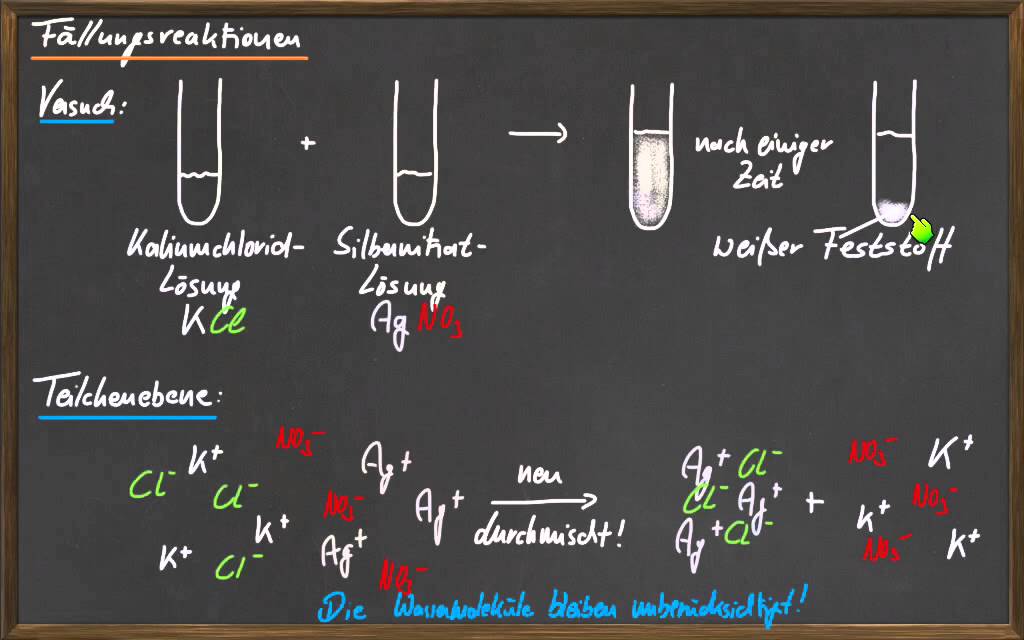 Fällungsreaktionen
Versuch:
+
nach einiger
Zeit
Kaliumchlorid-
Lösung
KCl
Silbernitrat-
Lösung
AgNO₃
weißer Feststoff
Teilchenebene:
Cl⁻ K⁺ Cl⁻ K⁺ K⁺ Cl⁻
NO₃⁻ Ag⁺ NO₃⁻ Ag⁺ Ag⁺ NO₃⁻
neu
durchmischt!
Ag⁺ Cl⁻
Cl⁻ Ag⁺
Ag⁺ Cl⁻
+
NO₃⁻ K⁺
K⁺ NO₃⁻
NO₃⁻ K⁺
Die Wassermoleküle bleiben unberücksichtigt!